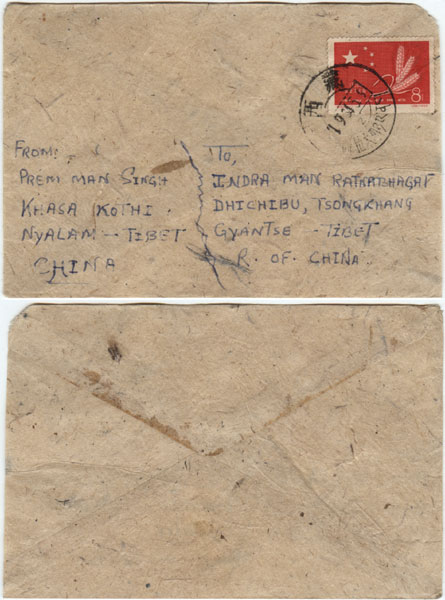 FROM:
PREM MAN SINGH
KHASA KOTHI.
NYALAM - TIBET
CHINA
TO,
INDRA MAN RATKATBHAGAT
DHICHIBU, TSONGKHANG
GYANTSE - TIBET
R. OF CHINA.
西藏
8